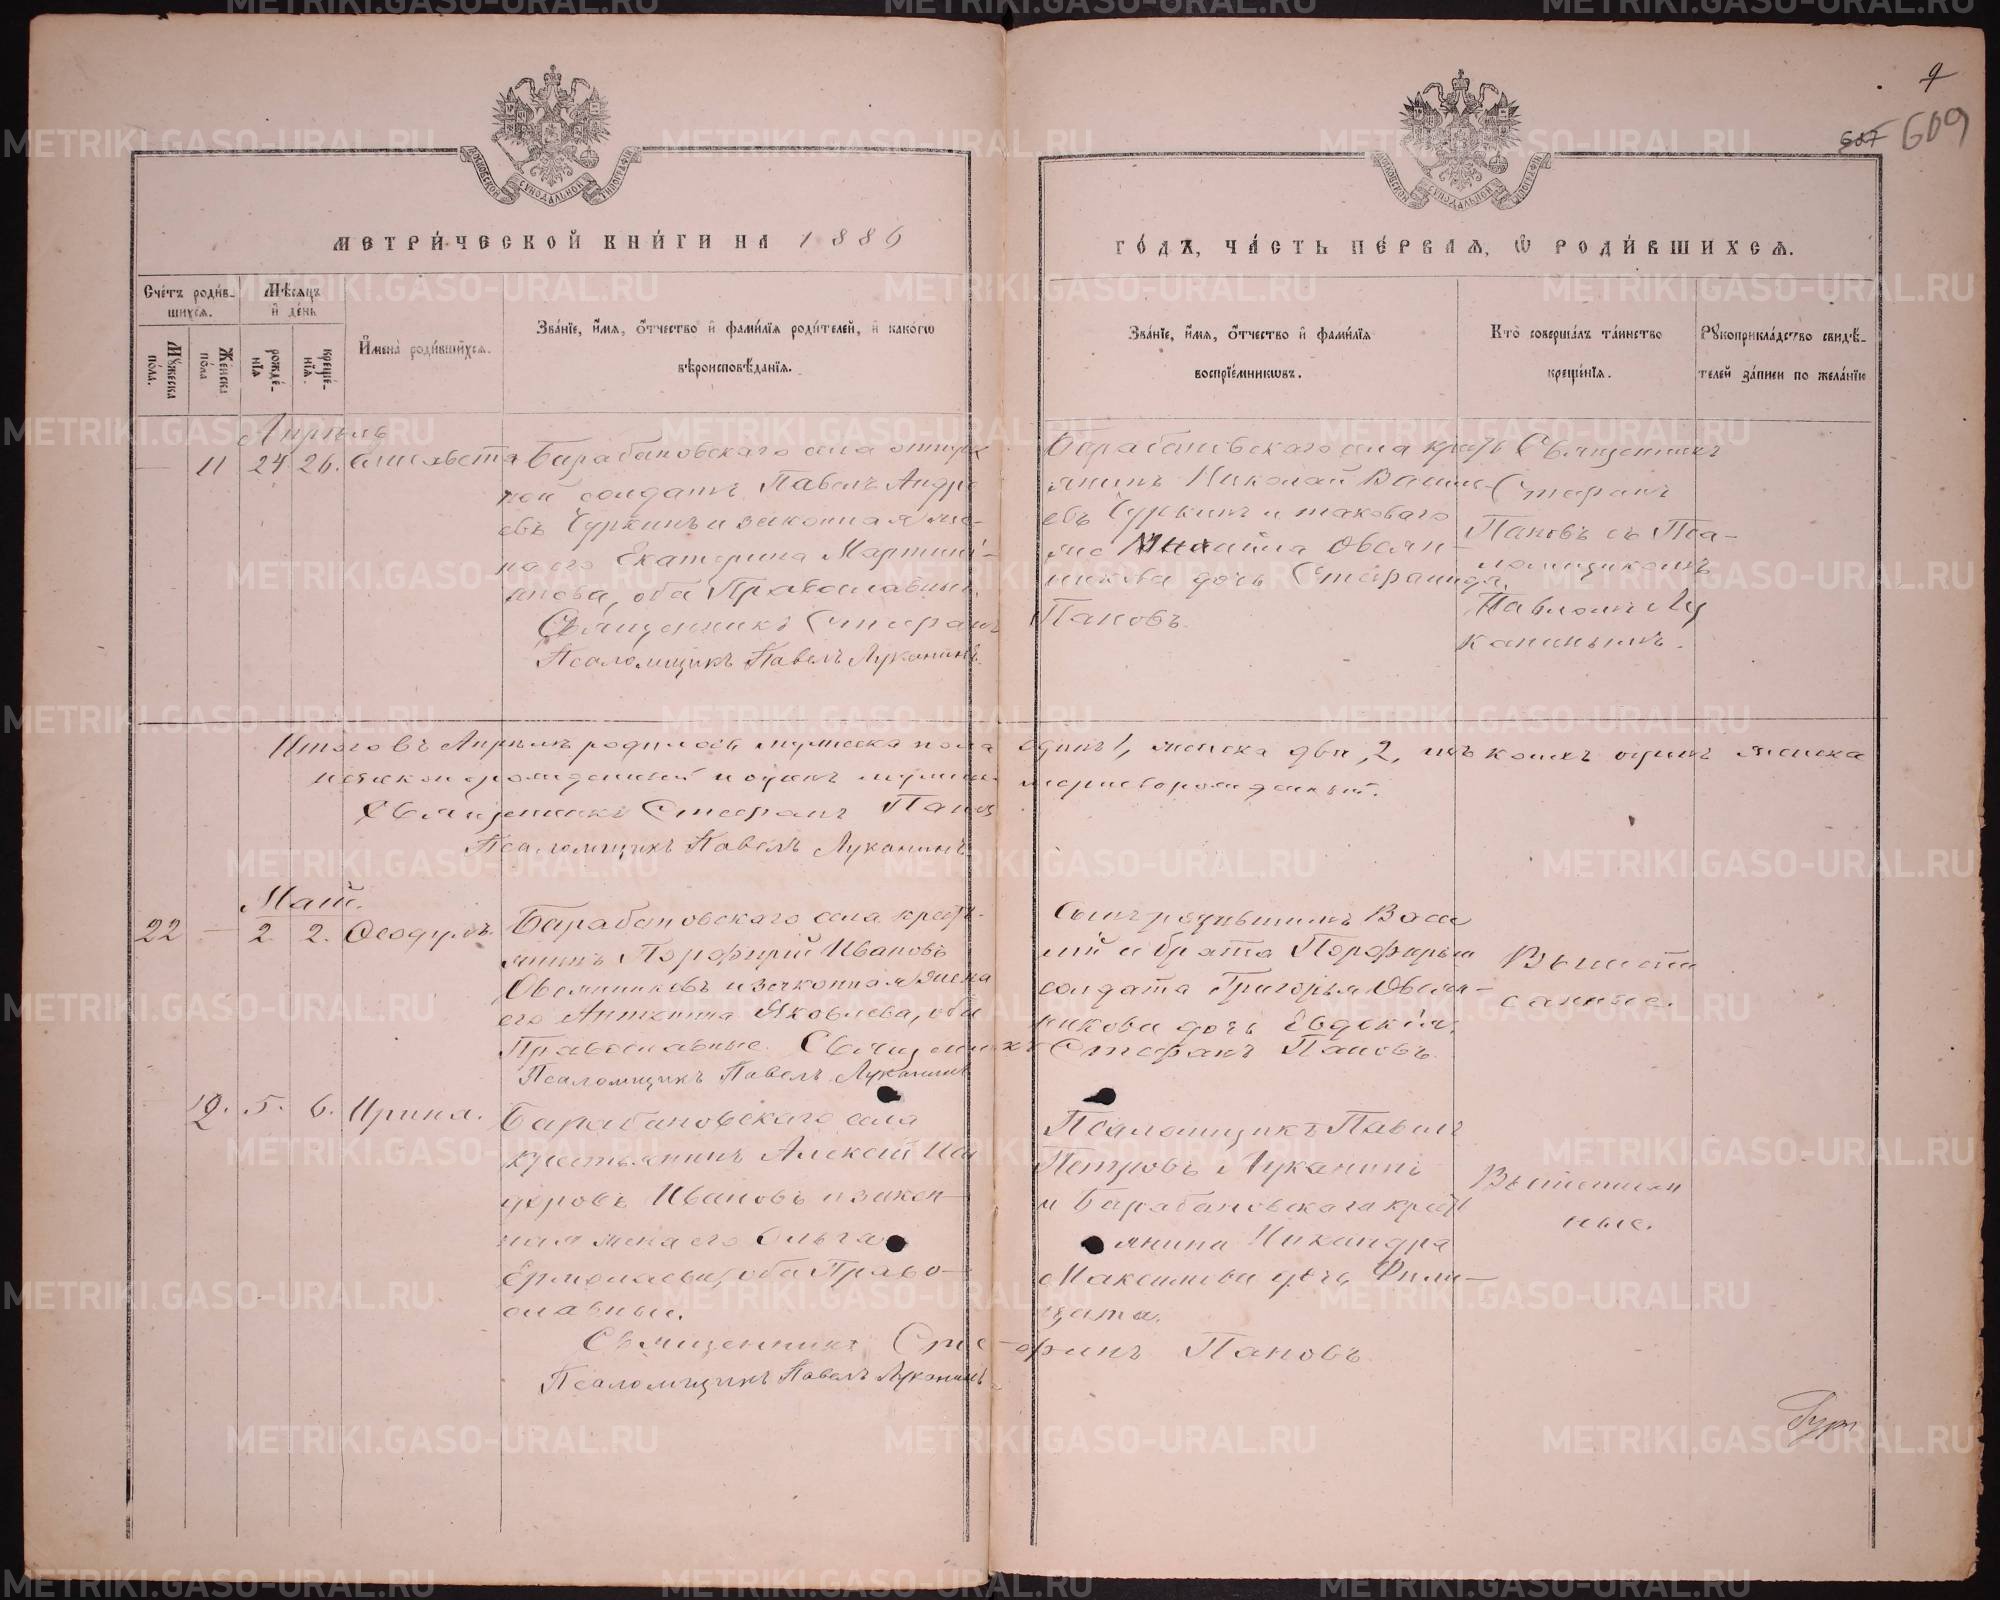 9
607 609
МОСКОВСКОЙ СѴНОДАЛЬНОЙ ТИПОГРАФІИ
МОСКОВСКОЙ СѴНОДАЛЬНОЙ ТИПОГРАФІИ
МЕТРИ́ЧЕСКОЙ КНИ́ГИ НА 1886
ГО́ДЪ, ЧА́СТЬ ПЕ́РВАѦ, Ѡ҆ РОДИ́ВШИХСѦ.
Сче́тъ роди́в-
шихсѧ.
Мꙋжеска по́ла.
Же́нска по́ла
Мѣ́сѧцъ и҆ де́нь
рожде́-нїѧ
креще́-нїѧ.
И҆мена̀ роди́вшихсѧ.
Зва́нїе, и҆́мѧ, ѻ҆́тчество и҆ фами́лїѧ роди́телей, и҆ како́гѡ
вѣроисповѣ́данїѧ.
Зва́нїе, и҆́мѧ, ѻ҆́тчество и҆ фами́лїѧ
воспрїе́мникѡвъ.
Кто̀ соверша́лъ та́инство
креще́нїѧ.
Рꙋкоприкла́дство свидѣ́-
телей за́писи по жела́нїю
Апрѣль
11 24 26. Елисавета
Барабановскаго села отпуск
ной солдатъ Павелъ Андре
евъ Чуркинъ и законная же-
на его Екатерина Мартині-
анова, оба Православные.
Священникъ Стефанъ
Псаломщикъ Павелъ Луканинъ.
Барабановскаго села крест
янинъ Николай Васи
евъ Чуркинъ и таковаго
же Овсян-
никова дочь Стефанида.
Пановъ.
Священникъ
Стефанъ
Пановъ съ Пса-
ломщикомъ
Павломъ Лу
канинымъ.
Итого въ Апрѣлѣ родилось мужеска пола одинъ 1, женска два, 2, изъ коихъ одинъ женска
незаконорожденный и одинъ мертворожденный.
Священникъ Стефанъ Пановъ
Псаломщикъ Павелъ Луканинъ
Май.
22 — 2. 2. Ѳеодулъ.
Барабановскаго села крест-
янинъ Порфирій Ивановъ
Овсянниковъ и законная жена
его Яковлева, оба
Православные. Священникъ
Псаломщикъ Павелъ Луканинъ
Сынъ родившихъ Васи
лій и брата Порфирья
солдата Григорья Овсян-
никова дочь Евдокія.
Стефанъ Пановъ.
Вышепи
санные.
12. 5. 6. Ирина.
Барабановскаго села
крестьянинъ Алексѣй Иси
доровъ Ивановъ и закон-
ная жена его Ольга
Ермолаева, оба Право-
славные.
Священникъ Сте-
Псаломщикъ Павелъ Луканинъ.
Псаломщикъ Павелъ
Петровъ Луканинъ
и Барабановскаго крест
янина Никандра
Максимова дочь Фили-
цата.
фанъ Пановъ.
Вышеписан
ные.